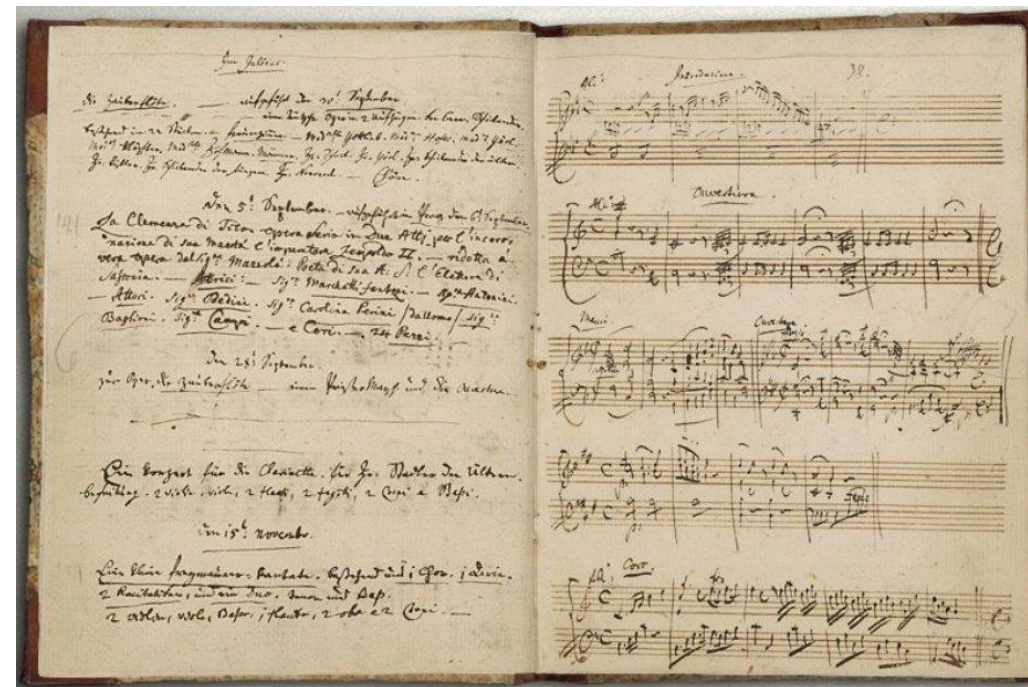 Im Jullius.
die Zauberflöte. — aufgeführt den 30t: September.
eine teutsche Oper in 2 Aufzügen. von Eman. Schikaneder.
bestehend in 22 Stücken. — Frauenzimmer. — Mad:selle Gottlieb. Mad:me Hofer. Mad:me Görl.
Mad:me Klöpfler. Mad:selle Hofmann. Männer. Hr: Schack. Hr: Görl. Hr: Schikaneder der ältere.
Hr: Kistler. Hr: Schikaneder der jüngere. Hr: Nouseul. — Chöre.
den 5t: September. — aufgeführt in Prag den 6t September.
La Clemenza di Tito. opera Seria in Due Atti. per l'incoro-
nazione di sua Maestà l'imperatore Leopoldo II. — ridotta á
vera opera dal Sig:re Mazzolà. Poeta di sua A: S: l'Elettore di
Sassonia. — Attrici: — Sig:ra Marchetti fantozi. — Sig:ra Antonini.
— Attori. Sig:re Bedini. Sig:ra Carolina Perini / da Uomo / Sig:re
Baglioni. Sig:re Campi. — e Cori. — 24 Pezzi. —
den 28t: September.
zur Oper. die Zauberflöte — einen Priestermarsch und die Ouverture.
Ein Konzert für die Clarinette. für Hr: Stadler den ältern.
begleitung. 2 violini, viola, 2 flauti, 2 fagotti, 2 Corni e Bassi.
den 15t: Novembr.
Eine kleine freymaurer-kantate. bestehend aus 1 Chor. 1 Arie.
2 Recitativen, und ein Duo. tenor und Bass.
2 violini, viola, Basso. 1 flauto, 2 oboe e 2 Corni. —
141
38.
All:o
Introduzione.
Ouvertura.
All:o
Marcia.
Ouvertura
All:o
Coro.